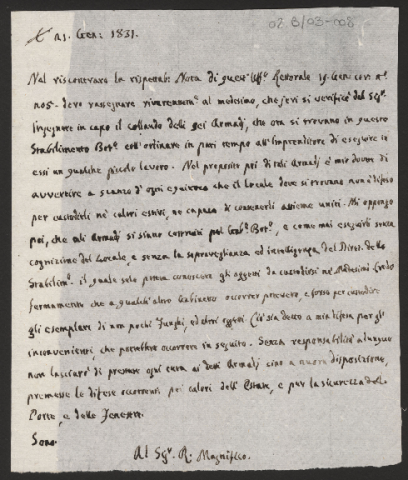 02 B/03-008
21. Gen: 1831.
Nel riscontrare la rispettab: Nota di quest' Uff: Rettorale 19. Gen: con n.o
205. devo rassegnare riverentem.e al medesimo, che jeri si verificò dal Sg.r
Ingegnere in capo il collaudo delli sei Armadj, che ora si trovano in questo
Stabilimento Bot.o coll'ordinare in pari tempo all'Imprenditore di eseguire in
essi un qualche piccolo lavoro. Nel proposito poi di tali Armadj è mio dovere di
avvertire a scanso d'ogni equivoco che il locale dove si trovano non è difeso
per custodirli ne' calori estivi, ne capace di contenerli assieme uniti. Mi oppongo
poi, che tali Armadj si siano costruiti pel Gab.o Bot.o, e come mai eseguirli senza
cognizione del Locale, e senza la sopraveglianza ed intelligenza del Dirett. dello
Stabilim.o il quale solo poteva conoscere gli oggetti da custodirsi ne' medesimi. Credo
fermamente che a qualch'altro Gabinetto occorrer potevano, e forse per custodire
gli esemplari di non pochi Funghi, ed altri oggetti. Ciò sia detto a mia difesa per gl'
inconvenienti, che potrebbero occorrere in seguito. Senza responsabilità alcuna
non lascierò di prestare ogni cura ai detti Armadj sino a nuova disposizione,
premesse le difese occorrenti pei calori dell'Estate, e per la sicurezza delle
Porte, e delle Fenestre.
Sono.
Al Sg.r R. Magnifico.